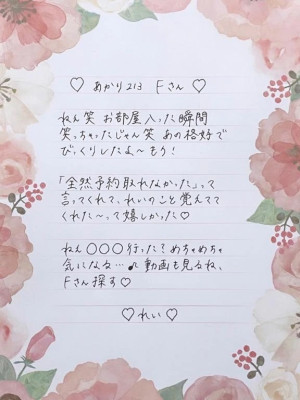 ♡ あかり213 Fさん ♡
ねぇ笑 お部屋入った瞬間
笑っちゃったじゃん笑 あの格好で
びっくりしたよ〜もう!
「全然予約取れなかった」って
言ってくれて、れいのこと覚えてて
くれた〜って嬉しかった♡
ねぇ〇〇〇行った?めちゃめちゃ
気になる…♪動画も見るね、
Fさん探す♡
♡ れい ♡